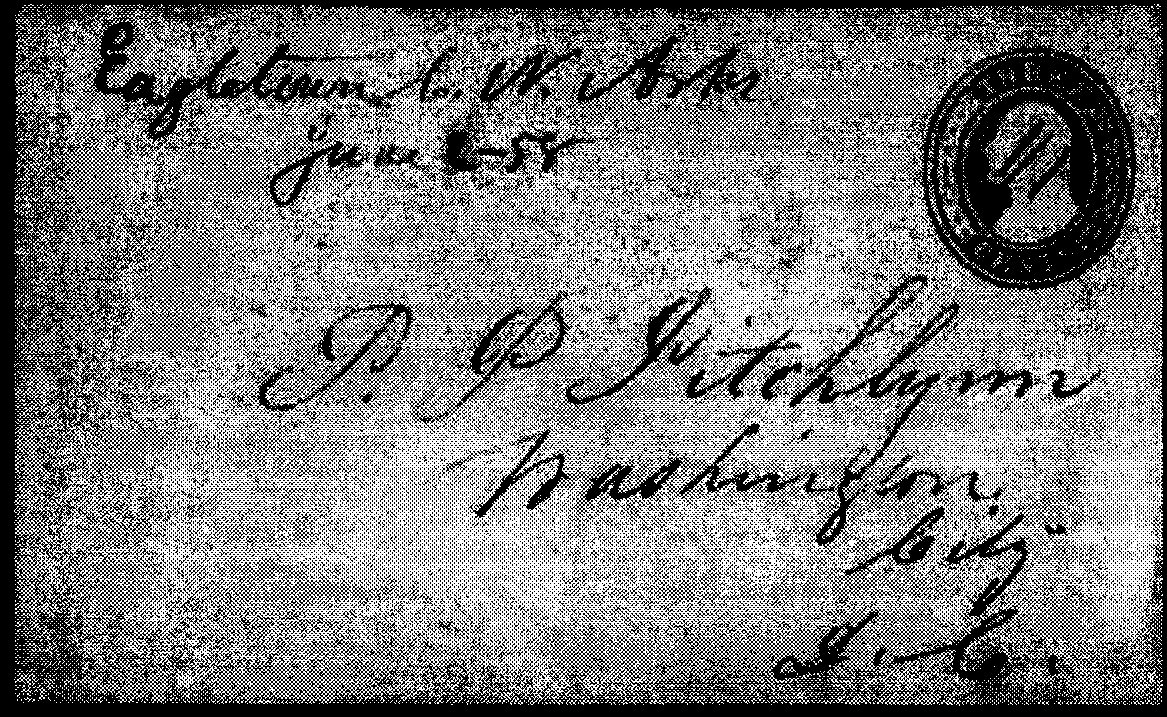 Eagletown C. N. Arks
June 2-58
P. P. Pitchlynn
Washington
City
D. C.